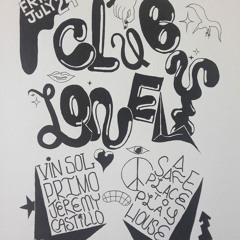 FRI
JULY 24
CLUB
LONELY
VIN SOL
PRIMO
JEREMY
CASTILLO
SAFE
PLACE
TO PLAY
HOUSE